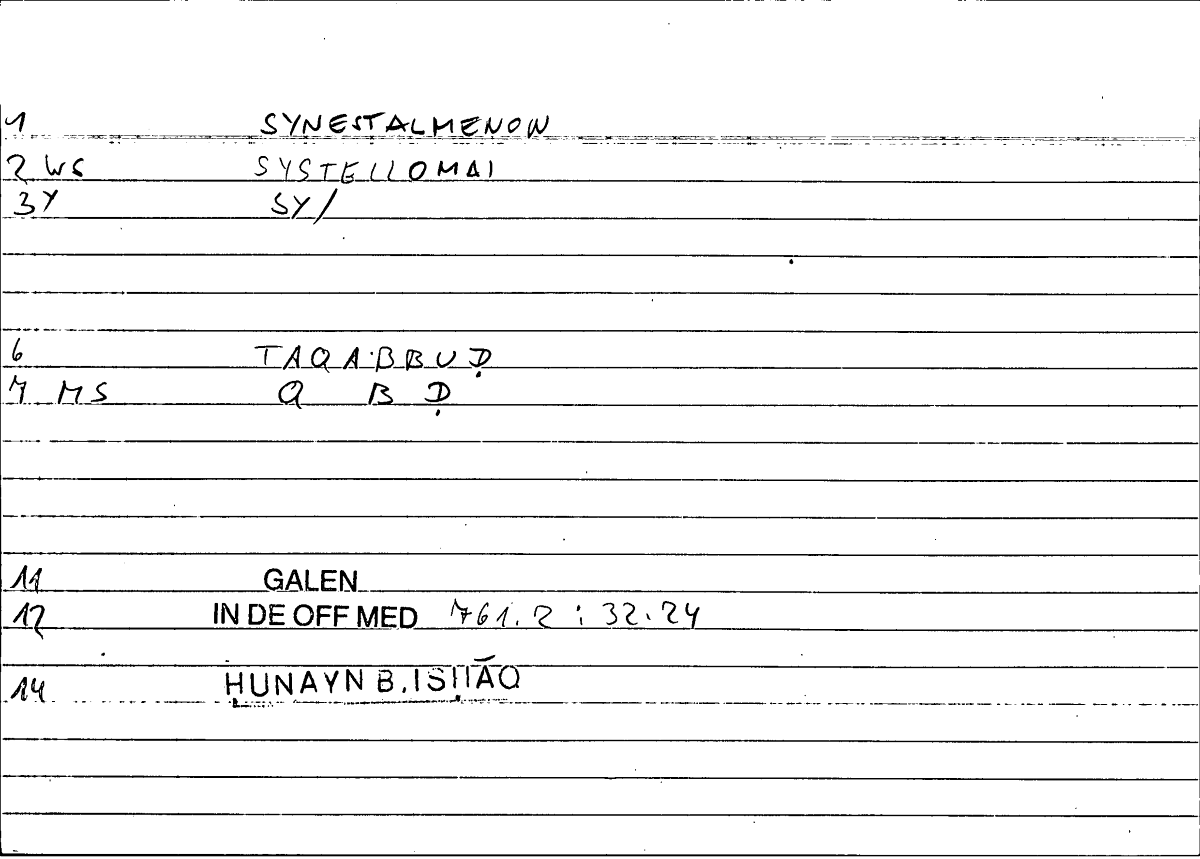 1 SYNESTALMENON
2 WS SYSTELLOMAI
3Y SY/
6 TAQABBUḌ
7 MS Q B Ḍ
11 GALEN
12 IN DE OFF MED 761.2 : 32.24
14 ḤUNAYN B. ISḤĀQ